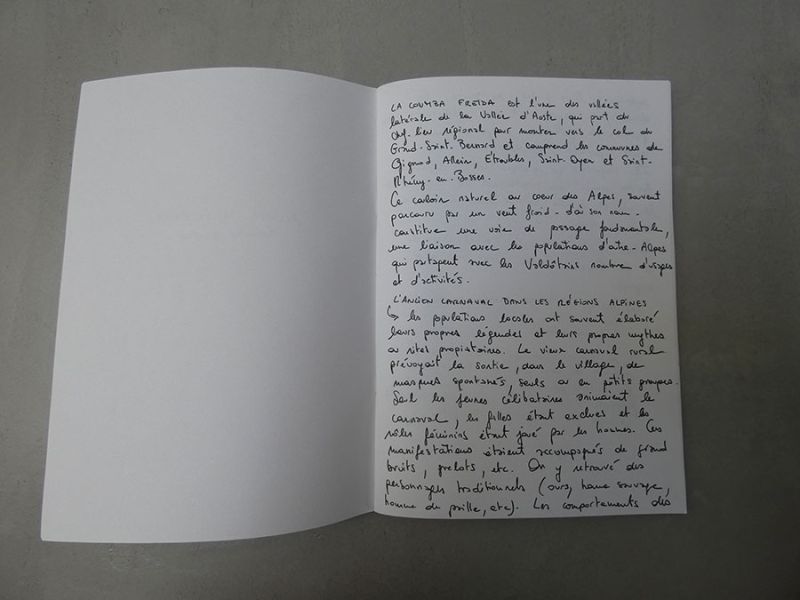 LA COUMBA FREIDA est l'une des vallées
latérale de la Vallée d'Aoste, qui part du
chf. lieu régional pour monter vers le col du
Grand-Saint-Bernard et comprend les communes de
Gignod, Allein, Étroubles, Saint-Oyen et Saint-
Rhémy-en-Bosses.
Ce couloir naturel au coeur des Alpes, souvent
parcouru par un vent froid - d'où son nom -
constitue une voie de passage fondamentale,
une liaison avec les populations d'outre-Alpes
qui partagent avec les Valdôtains nombre d'usages
et d'activités.
L'ANCIEN CARNAVAL DANS LES RÉGIONS ALPINES
↳ les populations locales ont souvent élaboré
leurs propres légendes et leurs propres mythes
ou rites propiatoires. Le vieux carnaval rural
prévoyait la sortie, dans le village, de
masques spontanés, seuls ou en petits groupes.
Seul les jeunes célibataires animaient le
carnaval, les filles étant exclues et les
rôles féminins étant joué par les hommes. Ces
manifestations étaient accompagnés de grand
bruits, grelots, etc. On y retrouve des
personnages traditionnels (ours, homme sauvage,
homme de paille, etc). Les comportements des